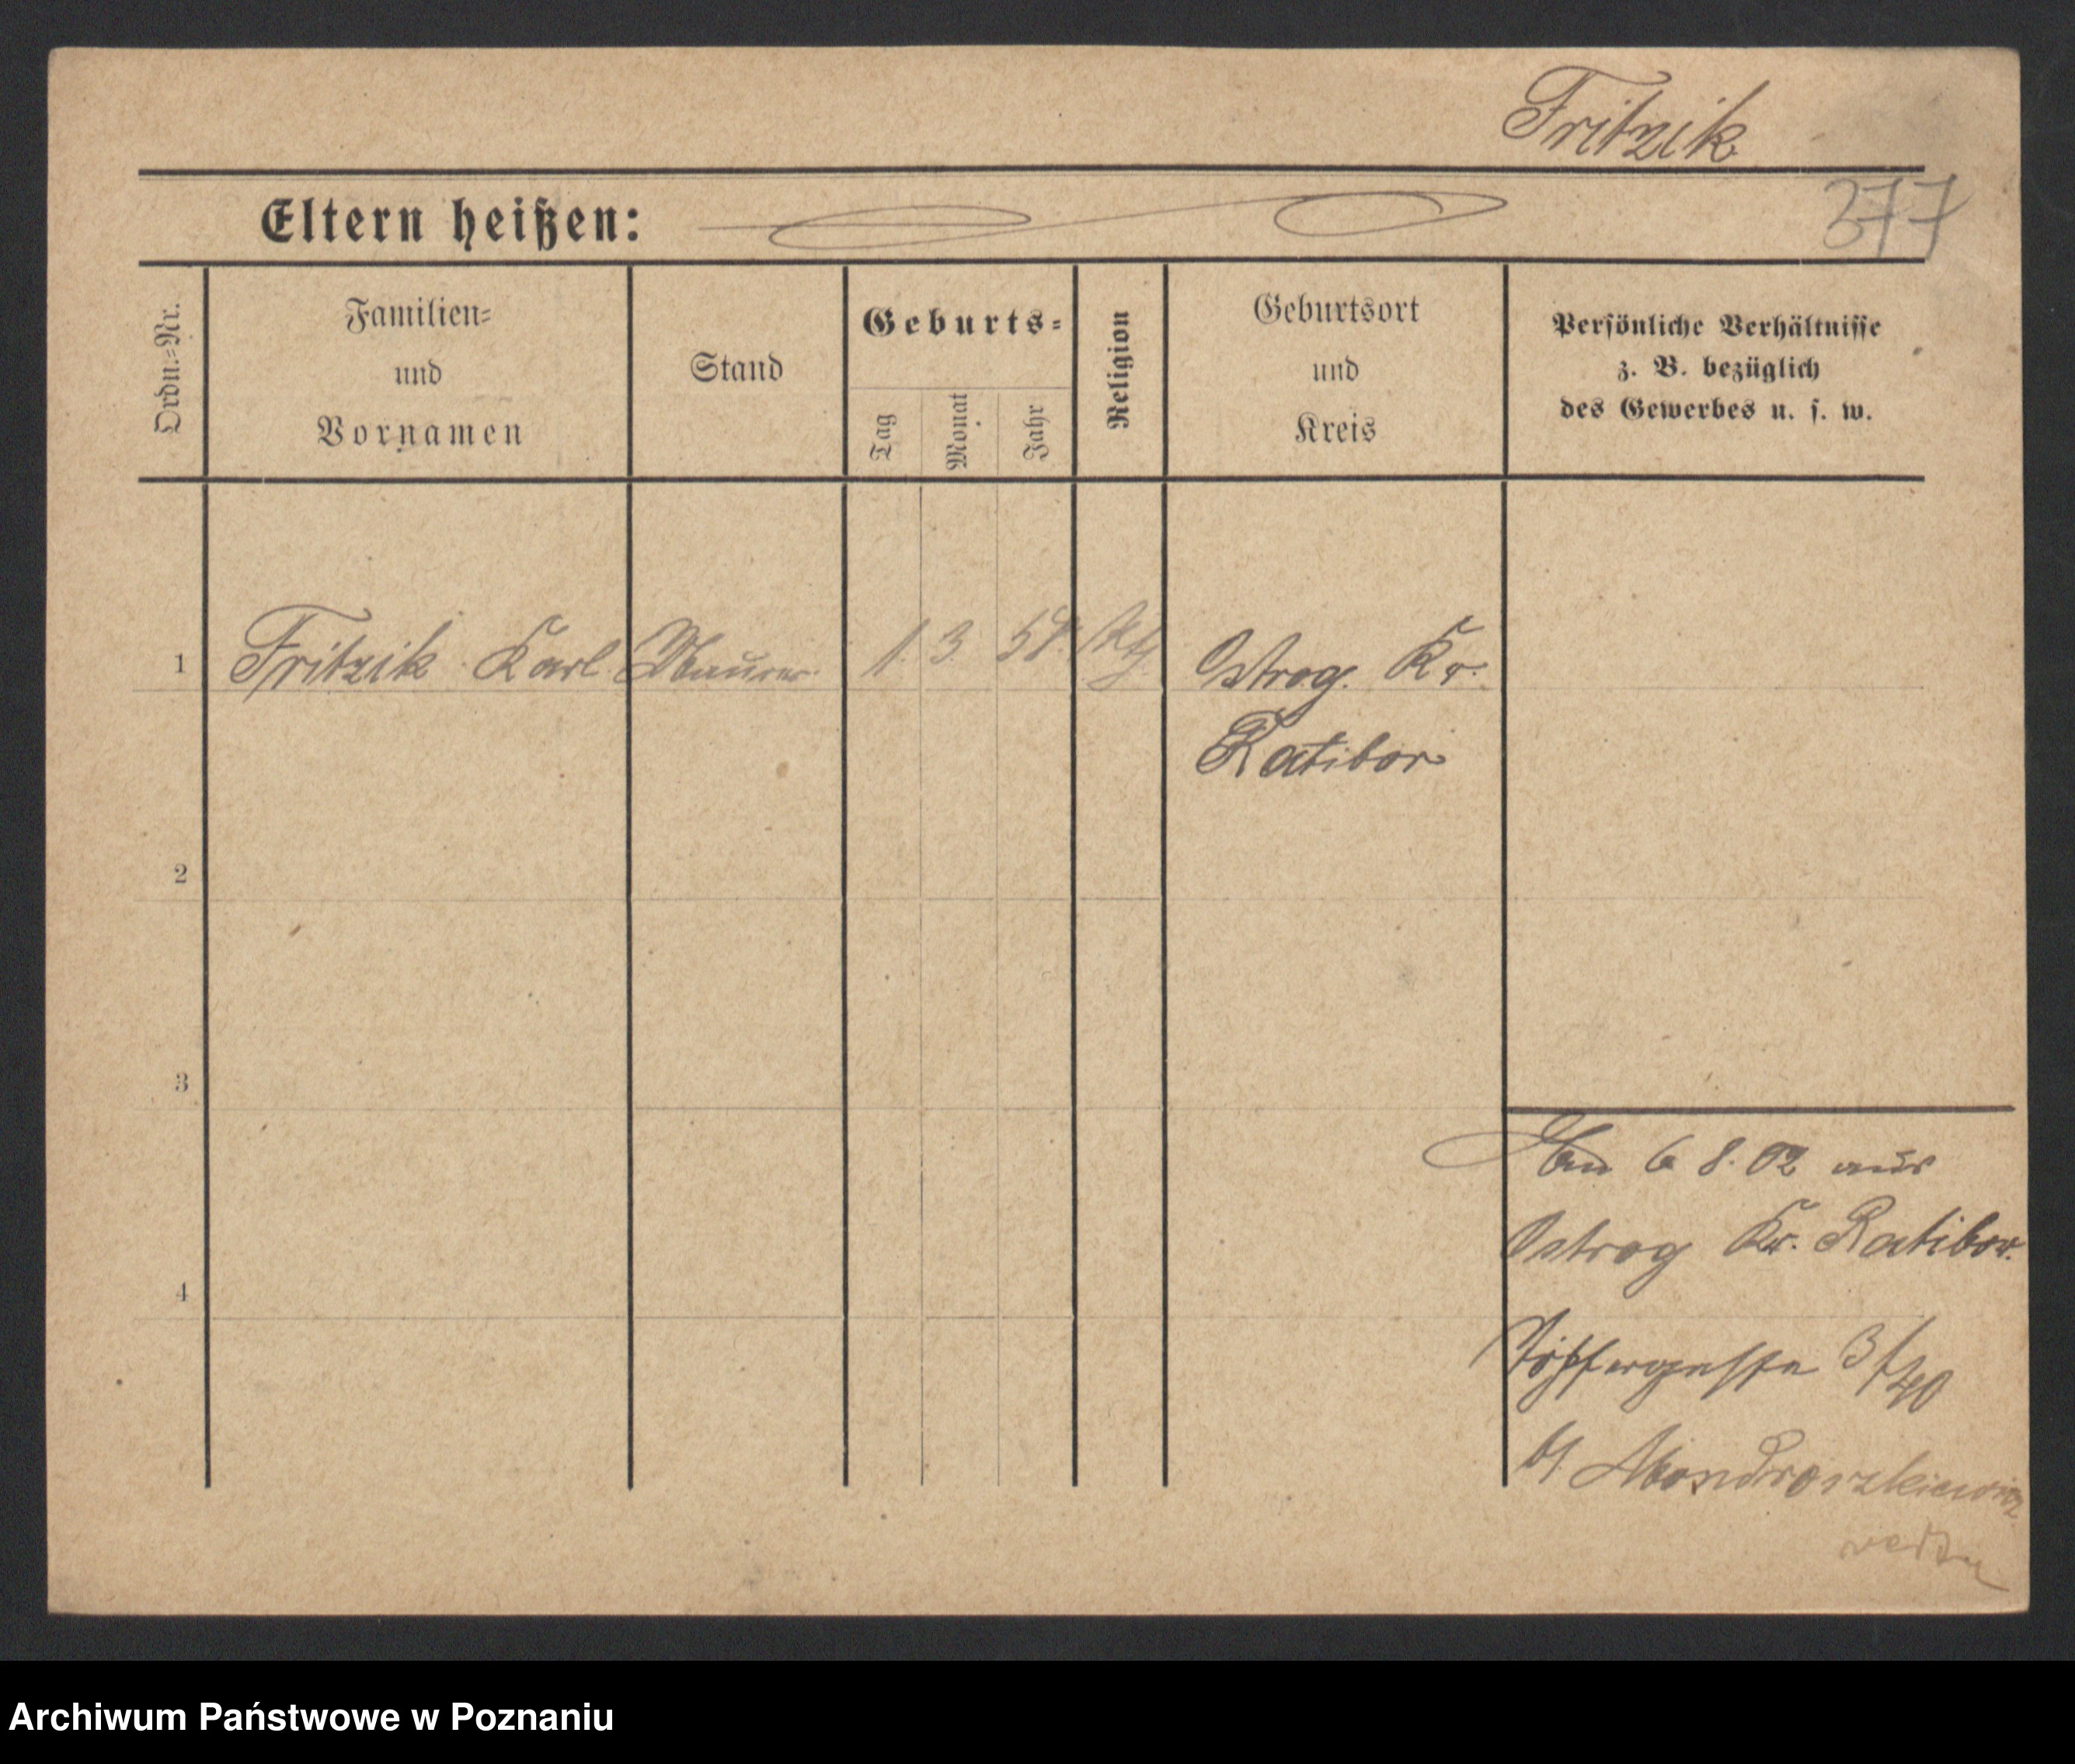 Fritzik
377
Eltern heißen:
Ordn.=Nr.
Familien=
und
Vornamen
Stand
Geburts=
Tag
Monat
Jahr
Religion
Geburtsort
und
Kreis
Persönliche Verhältnisse
z. B. bezüglich
des Gewerbes u. s. w.
1 Fritzik Karl Maurer 1. 3. 58. Ktg. Ostrog. Kr.
Ratibor
2
3
4
6 8. 02 aus
Ostrog Kr. Ratibor.
Töpfergasse 3/40
b/
Archiwum Państwowe w Poznaniu